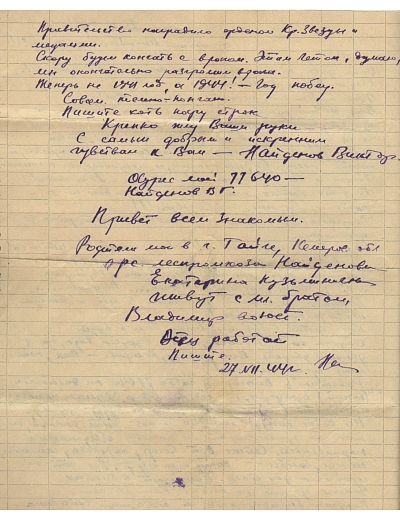 Правительство наградило орденом Кр. Звезды и
медалями.
Скоро будем кончать с врагом. Этим летом, думаю,
мы окончательно разгромим врага.
Теперь не 1941 год, а 1944! — Год побед.
Пишите хоть пару строк
Крепко жму Ваши руки
С самым добрым и искренним
чувствам к Вам — Найденов Виктор.
Адрес мой 77640 —
Найденов В Г.
Привет всем знакомым.
Родители мои в г. Тайге, Кемеров. обл
леспромхоза Найденова
Екатерина Кузьминична
живут с мл. братом,
Владимир воюет.
Отец работает
Пишите.
27.VII.44г.